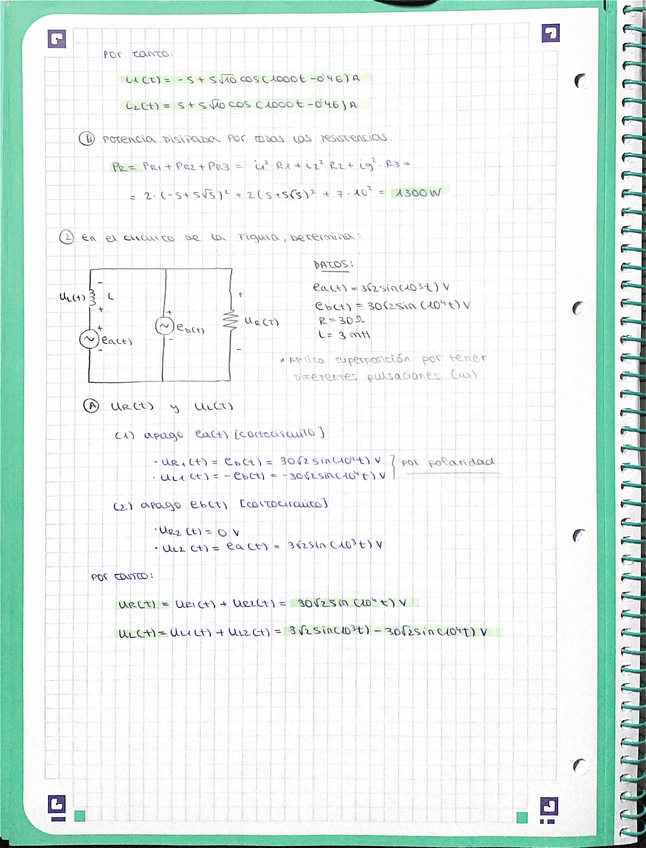 Por tanto:
i1(t) = -5 + 5√10 cos(1000t - 0'46) A
i2(t) = 5 + 5√10 cos(1000t - 0'46) A
(B) Potencia disipada por todas las resistencias.
PR = PR1 + PR2 + PR3 = i1² R1 + i2² R2 + ig² · R3 =
= 2 · (-5 + 5√5)² + 2(5 + 5√5)² + 7 · 10² = 1300 W
(2) En el circuito de la figura, determina:
DATOS:
ea(t) = 3√2 sin(10³t) V
eb(t) = 30√2 sin(10⁴t) V
R = 30 Ω
L = 3 mH
* Aplico superposición por tener
diferentes pulsaciones (ω)
-
UL(t) L
+
+
ea(t)
-
+
eb(t)
-
+
UR(t)
-
(A) UR(t) y UL(t)
(1) apago ea(t) [cortocircuito]
· UR1(t) = eb(t) = 30√2 sin(10⁴t) V
· UL1(t) = -eb(t) = -30√2 sin(10⁴t) V
por polaridad
(2) apago eb(t) [cortocircuito]
· UR2(t) = 0 V
· UL2(t) = ea(t) = 3√2 sin(10³t) V
Por tanto:
UR(t) = UR1(t) + UR2(t) = 30√2 sin(10⁴t) V
UL(t) = UL1(t) + UL2(t) = 3√2 sin(10³t) - 30√2 sin(10⁴t) V